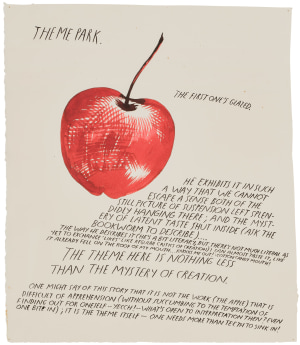 THEME PARK.
THE FIRST ONE'S GLAZED.
HE EXHIBITS IT IN SUCH
A WAY THAT WE CANNOT
ESCAPE A SENSE BOTH OF THE
STILL PICTURE OF SUSTENTION LEFT SPLEN-
DIDLY HANGING THERE; AND THE MYST-
ERY OF LATENT TASTE SHUT INSIDE (ASK THE
BOOKWORM TO DESCRIBE).
THE WAY HE DESCRIBES IT (HE'S A BIT LITERARY, BUT THERE'S NOT MUCH LITERAL AS
YET TO EXCHANGE
IT ALREADY FELL ON THE ROOF OF MY MOUTH,
THE THEME HERE IS NOTHING LESS
THAN THE MYSTERY OF CREATION.
ONE MIGHT SAY OF THIS STORY THAT IT IS NOT THE WORK (THE APPLE) THAT IS
DIFFICULT OF APPREHENSION (WITHOUT SUCCUMBING TO THE TEMPTATION OF
FINDING OUT FOR ONESELF – YECCH! – WHAT'S OPEN TO INTERPRETATION THEN? EVEN
ONE BITE IN); IT IS THE THEME ITSELF – ONE NEEDS MORE THAN TEETH TO SINK IN!